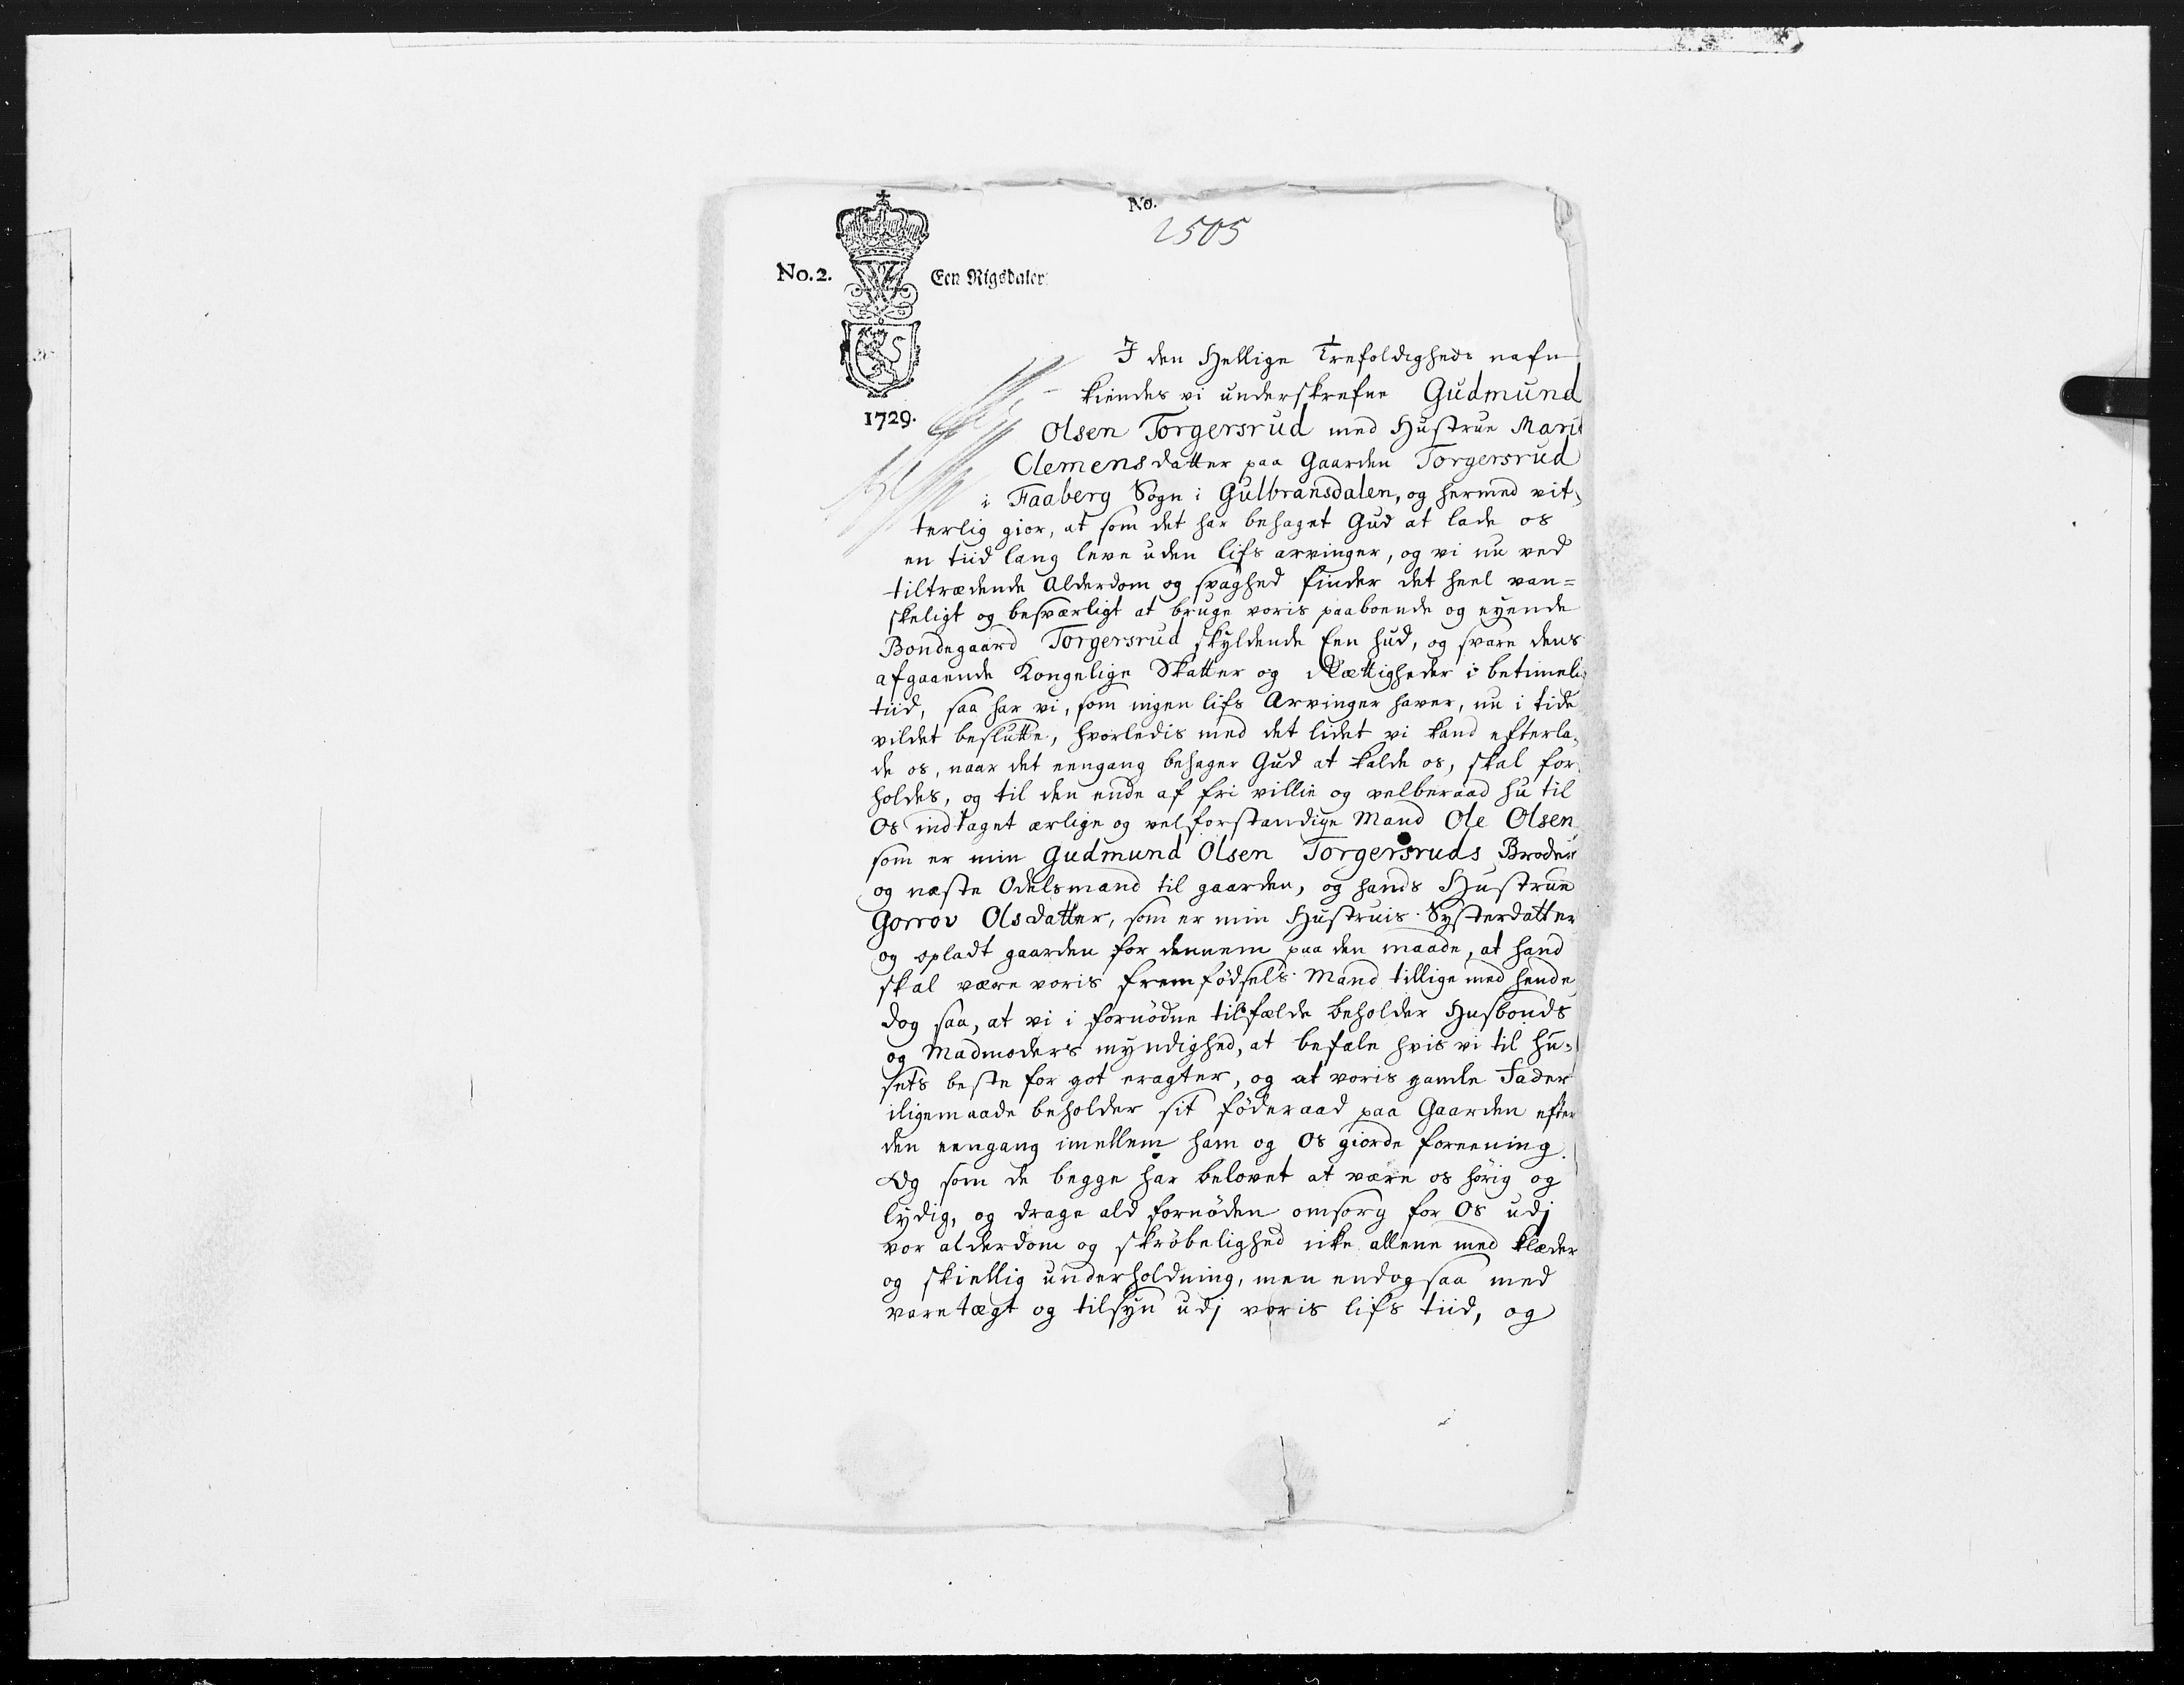 No.
2505
No. 2.
Een Rigsdaler
1729.
I den Hellige Trefoldigheds nafn
kiendes vi underskrefne Gudmund
Olsen Torgersrud med Hustrue Marit
Clemensdatter paa Gaarden Torgersrud
i Faaberg Sogn i Gulbransdalen, og hermed vit,
terlig gior, at som det har behaget Gud at lade os
en tiid lang leve uden lifs arvinger, og vi nu ved
tiltrædende Alderdom og svaghed finder det heel van=
skeligt og besværligt at bruge voris paaboende og eyende
Bondegaard Torgersrud skyldende Een hud, og svare dens
afgaaende Kongelige Skatter og Rættigheder i betimeli
tiid, saa har vi, som ingen lifs Arvinger haver, nu i tide
vildet beslutte, hvorledis med det lidet vi kand efterla,
de os, naar det eengang behager Gud at kalde os, skal for
holdes, og til den ende af fri villie og velberaad hu til
Os indtaget ærlige og velforstandige Mand Ole Olsen
som er min Gudmund Olsen Torgersruds Broder
og næste Odelsmand til gaarden, og hands Hustrue
Gorrov Olsdatter, som er min Hustruis Systerdatter
og opladt gaarden for dennem paa den maade, at hand
skal være voris fremfødsels Mand tillige med hende
dog saa, at vi i fornødne tilfælde beholder Husbonds
og Madmoders myndighed, at befale hvis vi til hu=
sets beste for got eragter, og at voris gamle Fader
iligemaade beholder sit föderaad paa Gaarden efter
den eengang imellem ham og Os giorde foreening.
Og som de begge har belovet at være os hörig og
lydig, og drage ald fornöden omsorg for Os udj
vor alderdom og skröbelighed icke allene med klæder
og skiellig underholdning, men endogsaa med
varetægt og tilsyn udj voris lifs tiid, og